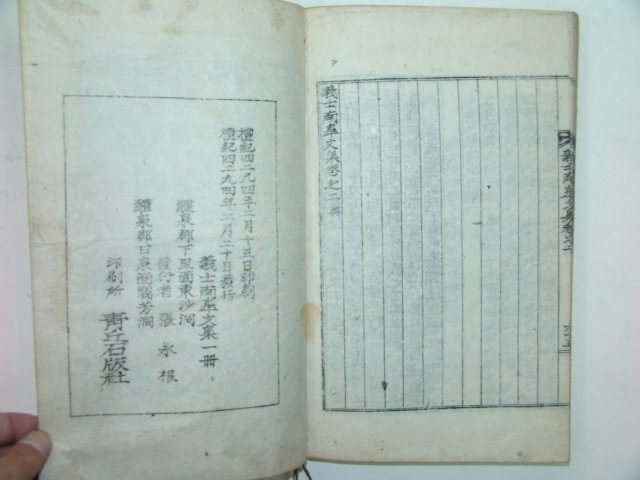 義士南皐文集卷之二終
檀紀四二九四年二月十五日印刷
檀紀四二九四年二月二十日發行
義士南皐文集一册
醴泉郡下里面東沙洞
發行者 張永根
醴泉郡甘泉面 芳洞
印刷所 靑丘石版社